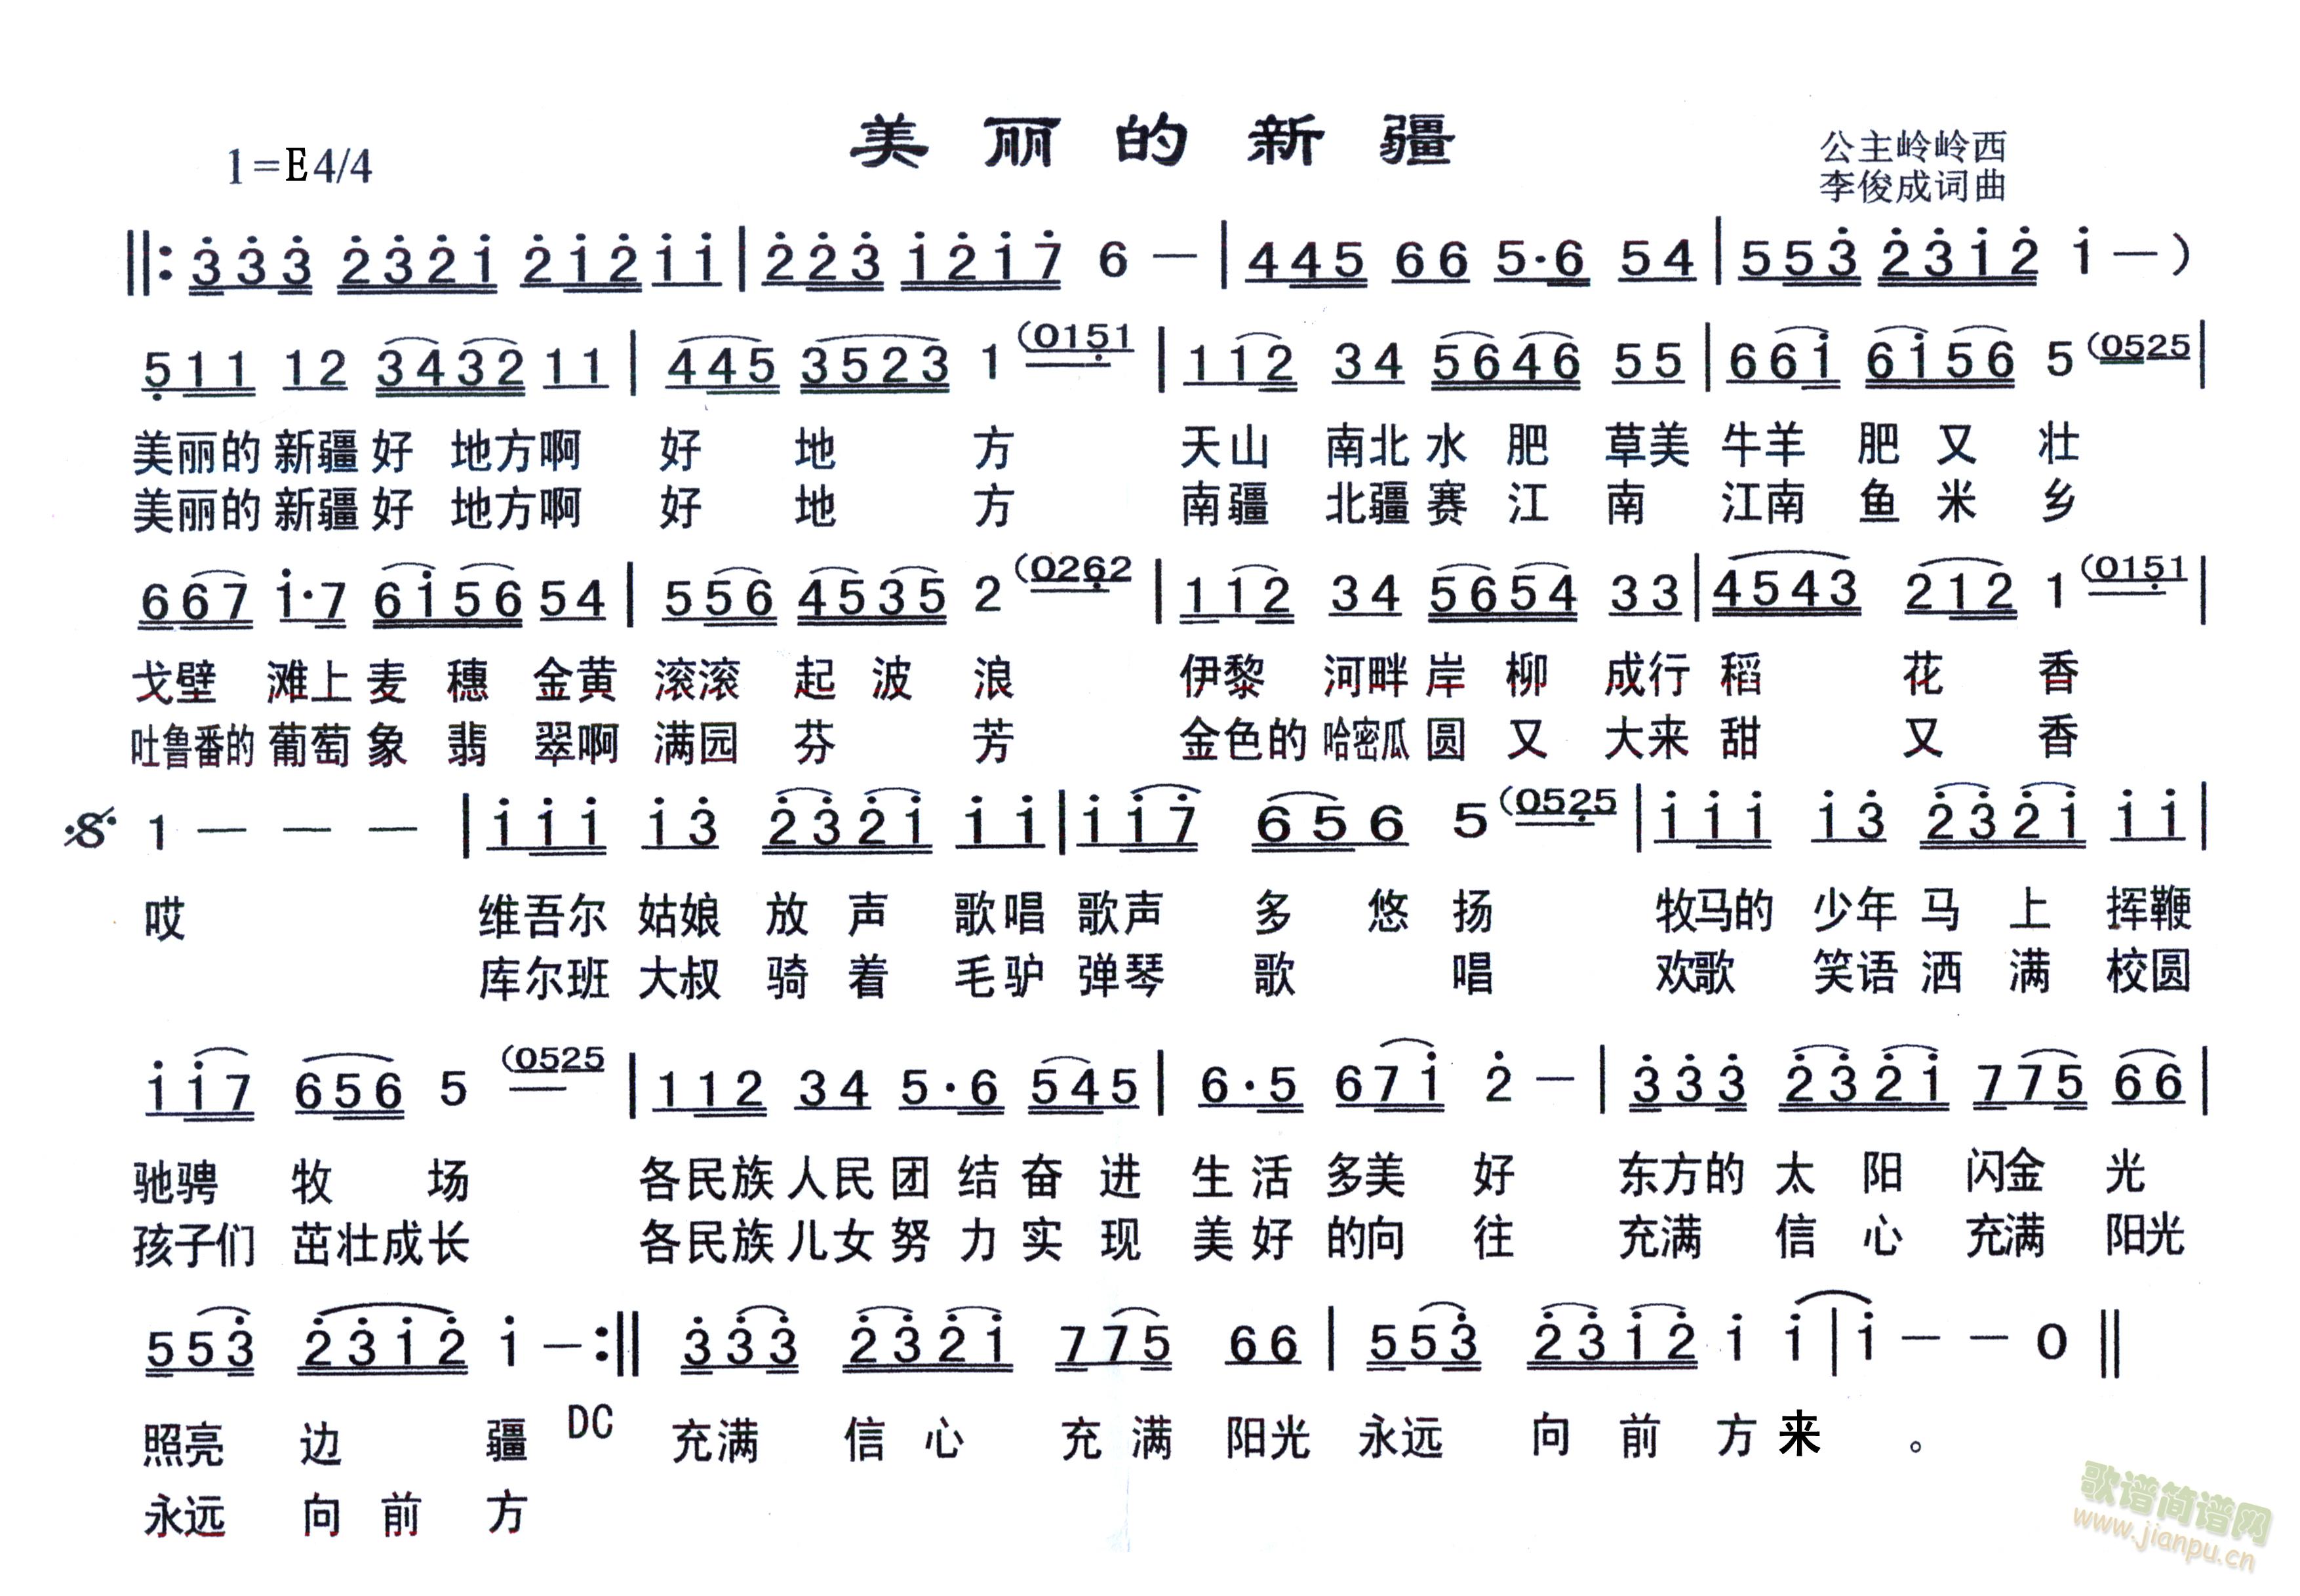 美丽的新疆
1=E4/4
公主岭岭西
李俊成词曲
‖: 3̇3̇3̇ 2̇3̇2̇1̇ 2̇1̇2̇ 1̇1̇ | 2̇2̇3̇ 1̇2̇1̇7̇ 6 — | 445 66 5·6 54 | 553̇ 2̇3̇1̇2̇ 1̇ — )
5̣11 12 3432 11 | 445 3523 1 (015̣1 | 112 34 5646 55 | 661̇ 61̇56 5 (0525 |
美丽的 新疆 好 地方啊 好 地 方 天山 南北 水 肥 草美 牛羊 肥 又 壮
美丽的 新疆 好 地方啊 好 地 方 南疆 北疆 赛 江 南 江南 鱼 米 乡
667 1̇·7 61̇56 54 | 556 4535 2 (026̣2 | 112 34 5654 33 | 4543 212 1 (015̣1 |
戈壁 滩上 麦 穗 金黄 滚滚 起 波 浪 伊黎 河畔 岸 柳 成行 稻 花 香
吐鲁番的 葡萄 象 翡 翠啊 满园 芬 芳 金色的 哈密瓜 圆 又 大来 甜 又 香
1 — — — | 1̇1̇1̇ 1̇3̇ 2̇3̇2̇1̇ 1̇1̇ | 1̇1̇7̇ 656 5 (052̣5 | 1̇1̇1̇ 1̇3̇ 2̇3̇2̇1̇ 1̇1̇ |
哎 维吾尔 姑娘 放 声 歌唱 歌声 多 悠 扬 牧马的 少年 马 上 挥鞭
库尔班 大叔 骑 着 毛驴 弹琴 歌 唱 欢歌 笑语 洒 满 校园
1̇1̇7 656 5 (0525 | 112 34 5·6 545 | 6·5 671̇ 2̇ — | 3̇3̇3̇ 2̇3̇2̇1̇ 775 66 |
驰骋 牧 场 各民族 人民 团 结 奋 进 生 活 多美 好 东方的 太 阳 闪金 光
孩子们 茁壮成长 各民族 儿女 努 力 实 现 美 好 的向 往 充满 信 心 充满 阳光
553̇ 2̇3̇1̇2̇ 1̇ — :‖ 3̇3̇3̇ 2̇3̇2̇1̇ 775 66 | 553̇ 2̇3̇1̇2̇ 1̇ 1̇ | 1̇ — — 0 ‖
照亮 边 疆 DC 充满 信 心 充 满 阳光 永远 向 前 方 来 。
永远 向 前 方
歌谱简谱网
www.jianpu.cn